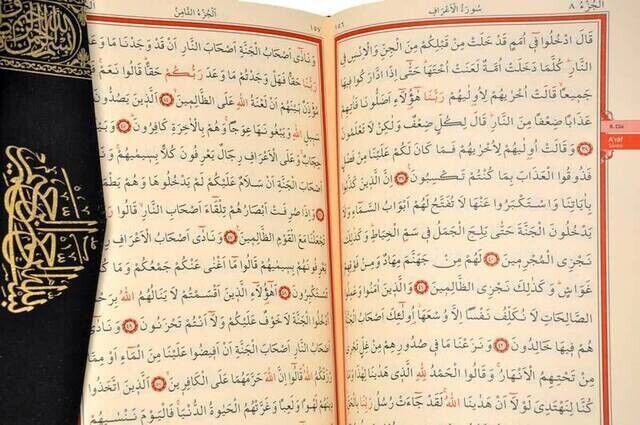 الْجُزْءُ ٨
سُورَةُ الْأَعْرَافِ
قَالَ ادْخُلُوا فِي أُمَمٍ قَدْ خَلَتْ مِنْ قَبْلِكُمْ مِنَ الْجِنِّ وَالْإِنْسِ فِي
النَّارِ كُلَّمَا دَخَلَتْ أُمَّةٌ لَعَنَتْ أُخْتَهَا حَتَّى إِذَا ادَّارَكُوا فِيهَا
جَمِيعًا قَالَتْ أُخْرَيهُمْ لِأُولَيهُمْ رَبَّنَا هَؤُلَاءِ أَضَلُّونَا فَآتِهِمْ
عَذَابًا ضِعْفًا مِنَ النَّارِ قَالَ لِكُلٍّ ضِعْفٌ وَلَكِنْ لَا تَعْلَمُونَ
﴿٣٨﴾ وَقَالَتْ أُولَيهُمْ لِأُخْرَيهُمْ فَمَا كَانَ لَكُمْ عَلَيْنَا مِنْ فَضْلٍ
فَذُوقُوا الْعَذَابَ بِمَا كُنْتُمْ تَكْسِبُونَ ﴿٣٩﴾ إِنَّ الَّذِينَ كَذَّبُوا
بِآيَاتِنَا وَاسْتَكْبَرُوا عَنْهَا لَا تُفَتَّحُ لَهُمْ أَبْوَابُ السَّمَاءِ وَلَا
يَدْخُلُونَ الْجَنَّةَ حَتَّى يَلِجَ الْجَمَلُ فِي سَمِّ الْخِيَاطِ وَكَذَلِكَ
نَجْزِي الْمُجْرِمِينَ ﴿٤٠﴾ لَهُمْ مِنْ جَهَنَّمَ مِهَادٌ وَمِنْ فَوْقِهِمْ
غَوَاشٍ وَكَذَلِكَ نَجْزِي الظَّالِمِينَ ﴿٤١﴾ وَالَّذِينَ آمَنُوا وَعَمِلُوا
الصَّالِحَاتِ لَا نُكَلِّفُ نَفْسًا إِلَّا وُسْعَهَا أُولَئِكَ أَصْحَابُ الْجَنَّةِ
هُمْ فِيهَا خَالِدُونَ ﴿٤٢﴾ وَنَزَعْنَا مَا فِي صُدُورِهِمْ مِنْ غِلٍّ تَجْرِي
مِنْ تَحْتِهِمُ الْأَنْهَارُ وَقَالُوا الْحَمْدُ لِلَّهِ الَّذِي هَدَينَا لِهَذَا وَمَا
كُنَّا لِنَهْتَدِيَ لَوْلَا أَنْ هَدَينَا اللَّهُ لَقَدْ جَاءَتْ رُسُلُ رَبِّنَا
8. Cüz
A'râf
Sûresi
اَلْجُزْءُ الثَّامِنُ
وَنَادَى أَصْحَابُ الْجَنَّةِ أَصْحَابَ النَّارِ أَنْ قَدْ وَجَدْنَا مَا وَعَدَنَا
رَبُّنَا حَقًّا فَهَلْ وَجَدْتُمْ مَا وَعَدَ رَبُّكُمْ حَقًّا قَالُوا نَعَمْ
مُؤَذِّنٌ بَيْنَهُمْ أَنْ لَعْنَةُ اللَّهِ عَلَى الظَّالِمِينَ ﴿٤٤﴾ الَّذِينَ يَصُدُّونَ
سَبِيلِ اللَّهِ وَيَبْغُونَهَا عِوَجًا وَهُمْ بِالْآخِرَةِ كَافِرُونَ ﴿٤٥﴾
حِجَابٌ وَعَلَى الْأَعْرَافِ رِجَالٌ يَعْرِفُونَ كُلًّا بِسِيمَيهُمْ
أَصْحَابَ الْجَنَّةِ أَنْ سَلَامٌ عَلَيْكُمْ لَمْ يَدْخُلُوهَا وَهُمْ يَطْمَعُونَ
﴿٤٦﴾ وَإِذَا صُرِفَتْ أَبْصَارُهُمْ تِلْقَاءَ أَصْحَابِ النَّارِ قَالُوا رَبَّنَا
تَجْعَلْنَا مَعَ الْقَوْمِ الظَّالِمِينَ ﴿٤٧﴾ وَنَادَى أَصْحَابُ الْأَعْرَافِ
يَعْرِفُونَهُمْ بِسِيمَيهُمْ قَالُوا مَا أَغْنَى عَنْكُمْ جَمْعُكُمْ وَمَا كُنْتُمْ
تَسْتَكْبِرُونَ ﴿٤٨﴾ أَهَؤُلَاءِ الَّذِينَ أَقْسَمْتُمْ لَا يَنَالُهُمُ اللَّهُ
ادْخُلُوا الْجَنَّةَ لَا خَوْفٌ عَلَيْكُمْ وَلَا أَنْتُمْ تَحْزَنُونَ ﴿٤٩﴾ وَنَادَى
أَصْحَابُ النَّارِ أَصْحَابَ الْجَنَّةِ أَنْ أَفِيضُوا عَلَيْنَا مِنَ الْمَاءِ أَوْ مِمَّا
رَزَقَكُمُ اللَّهُ قَالُوا إِنَّ اللَّهَ حَرَّمَهُمَا عَلَى الْكَافِرِينَ ﴿٥٠﴾ الَّذِينَ اتَّخَذُوا
دِينَهُمْ لَهْوًا وَلَعِبًا وَغَرَّتْهُمُ الْحَيَوةُ الدُّنْيَا فَالْيَوْمَ نَنْسَيهُمْ